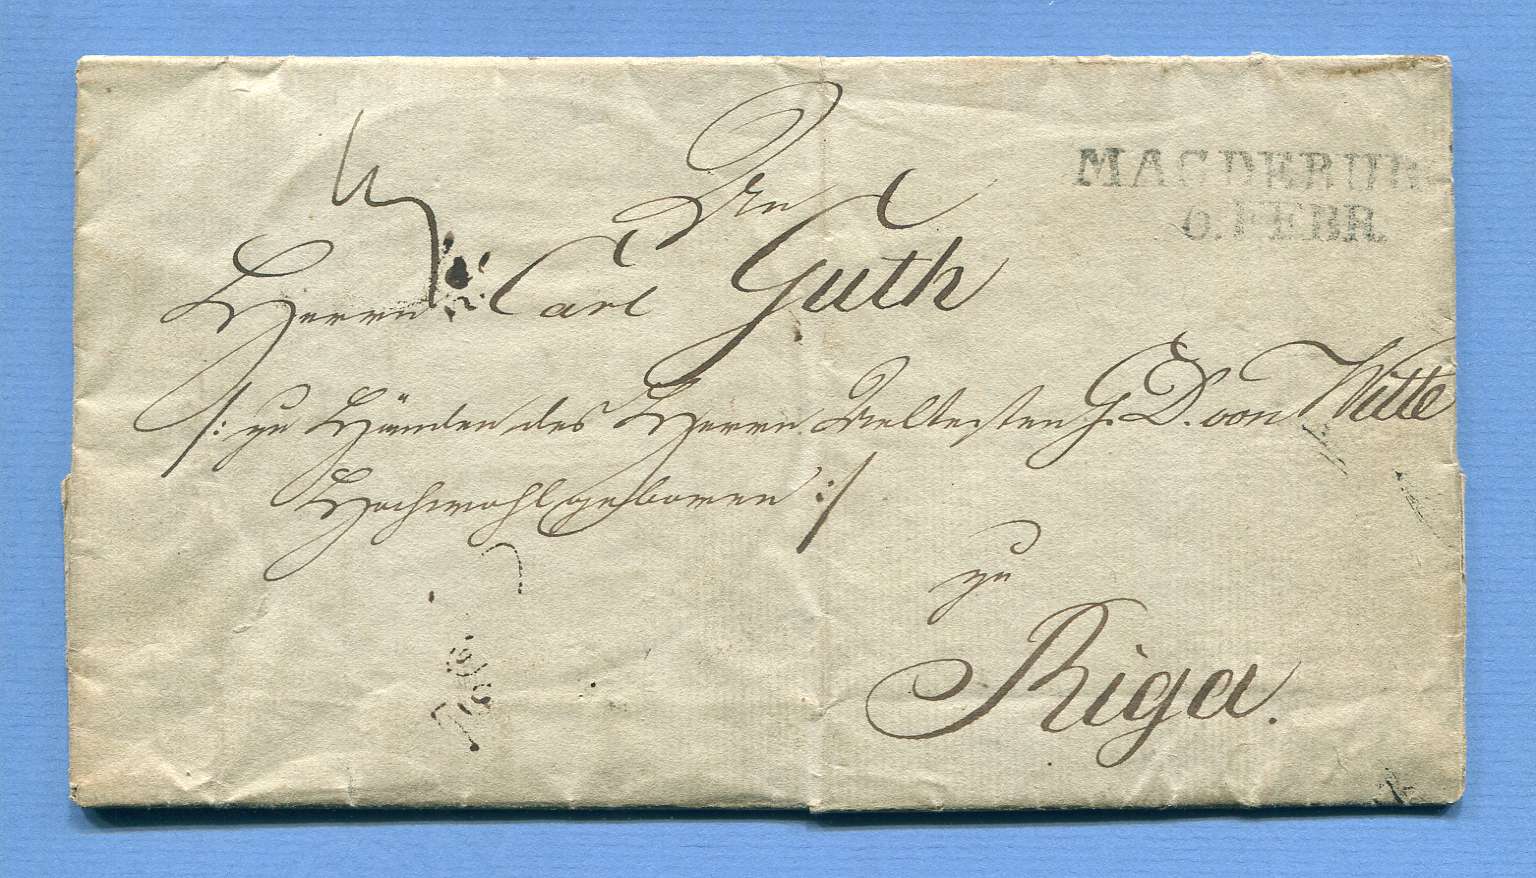 MAGDEBURG
6. FEBR.
An
Herrn Carl Guth
/: zu Händen des Herrn Aeltesten G. D. von Witte
Hochwohlgeboren :/
zu
Riga.